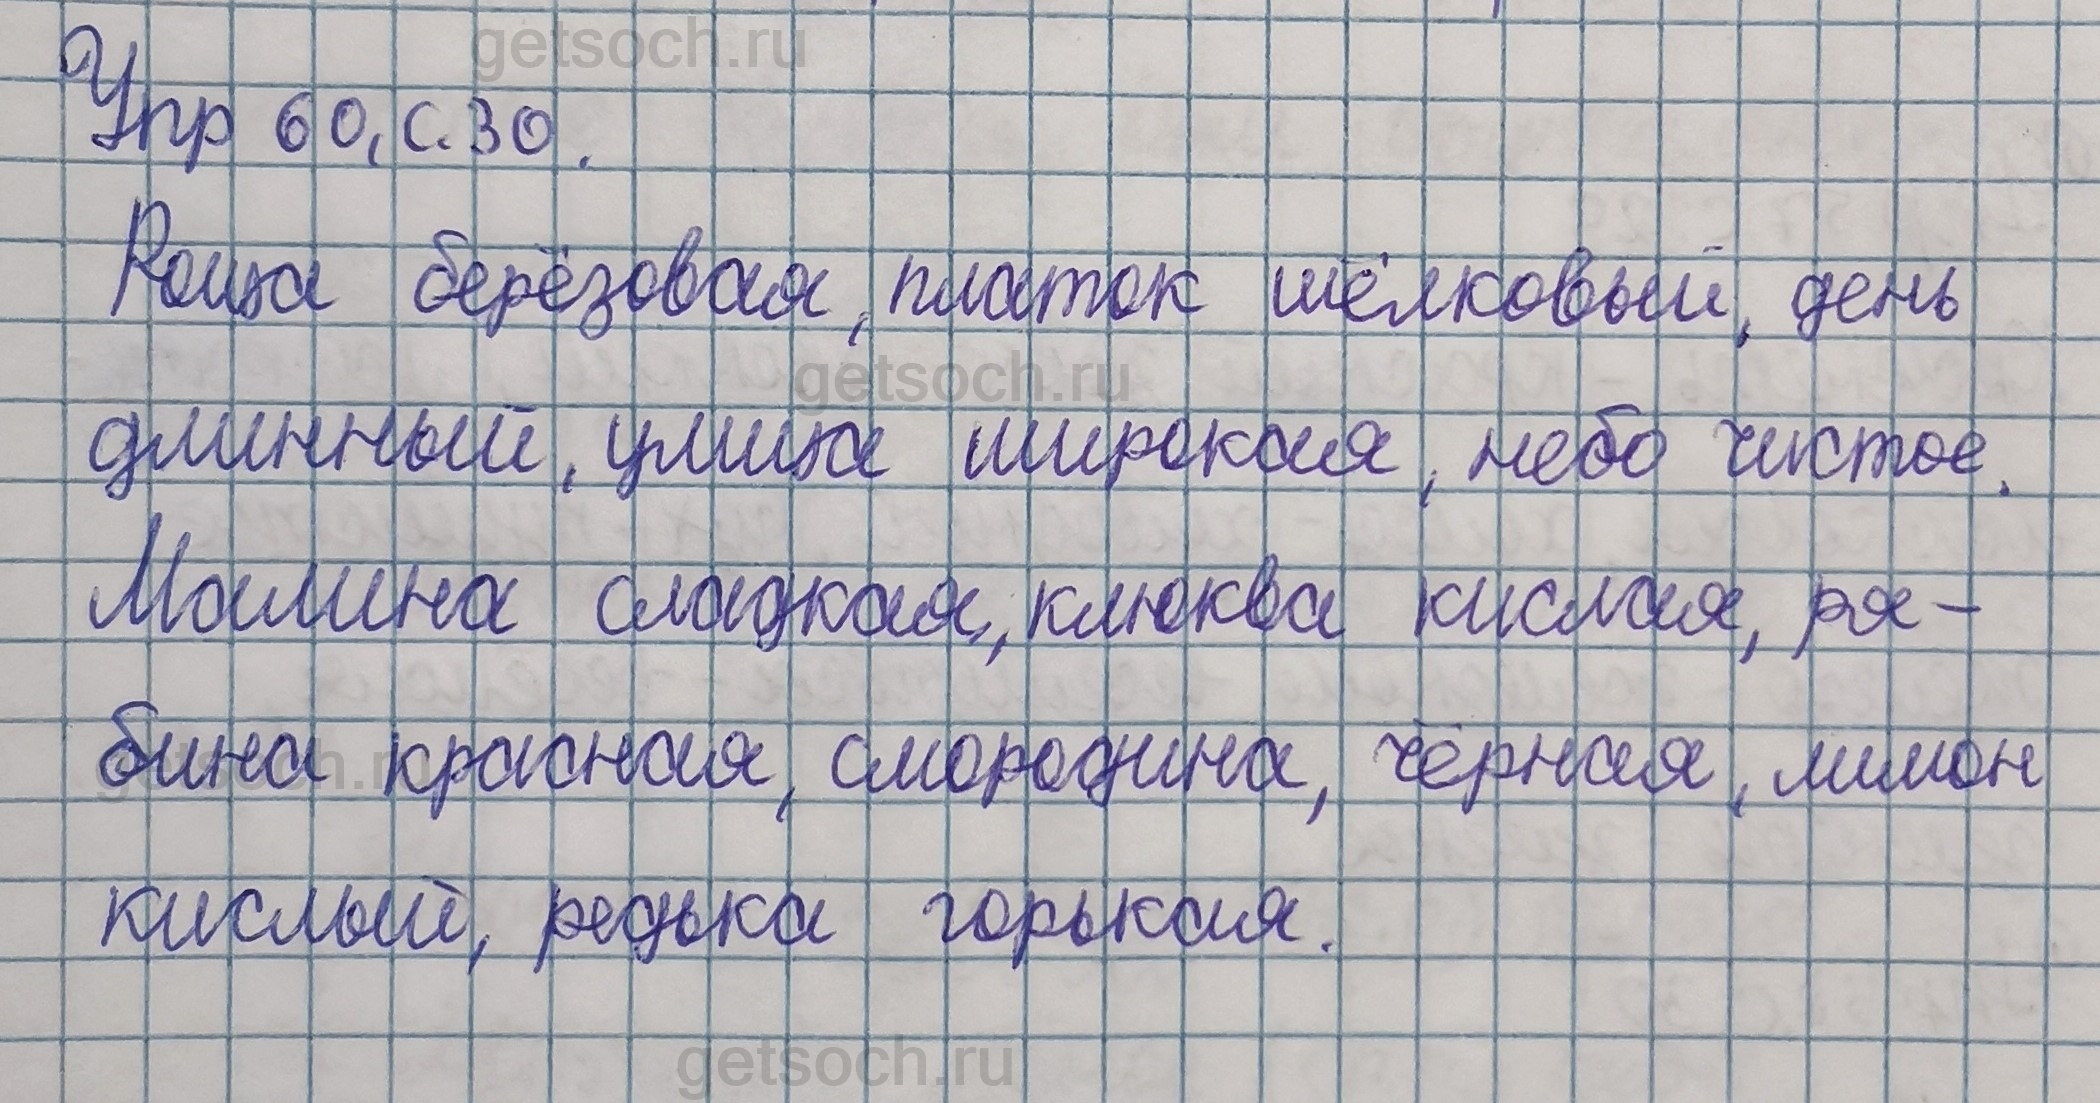 getsoch.ru
Упр 60, с. 30.
Роща берёзовая, платок шёлковый, день
getsoch.ru
длинный, улица широкая, небо чистое.
Малина сладкая, клюква кислая, ря-
бина красная, смородина, чёрная, лимон
getsoch.ru
кислый, редька горькая.
getsoch.ru